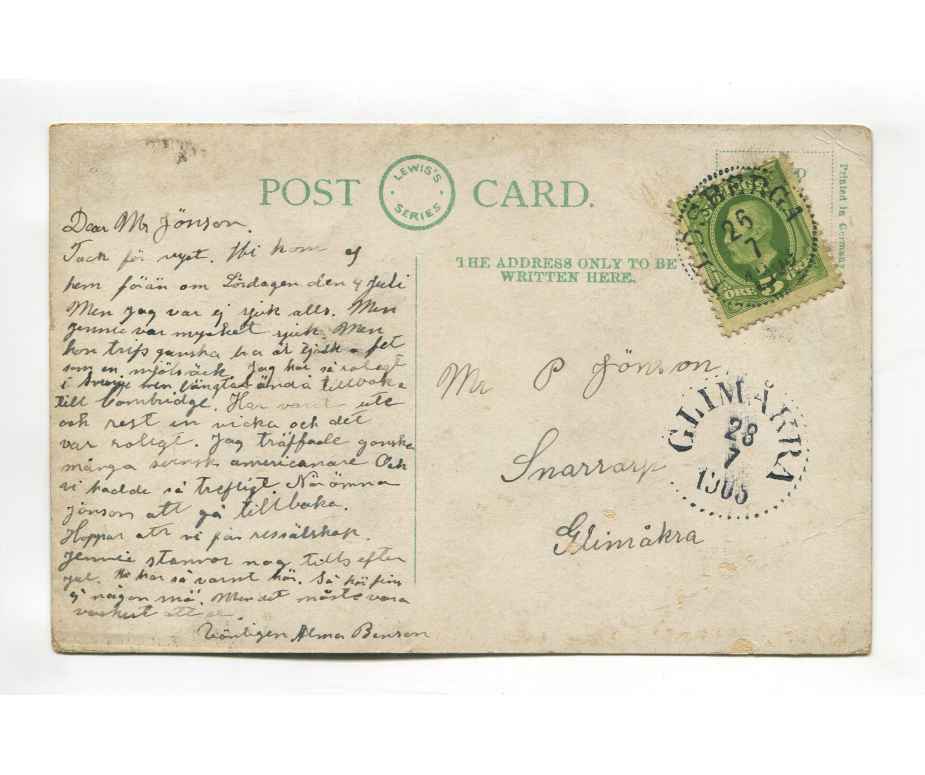 POST CARD.
LEWIS'S SERIES
Printed in Germany
THE ADDRESS ONLY TO BE
WRITTEN HERE.
SVERIGE
5
ÖRE
26
7
GLIMÅKRA
28
7
1908
Dear Mr Jönson.
Tack för Wi kom ej
hem förän om Lördagen den 4 Juli
Men Jag var ej sjuk alls. Men
Jennie var mycket sjuk. Men
hon ganska bra är fet
som en mjölsäck. Jag har så roligt
i Sverige men längtar ändå tillbaka
till Cambridge. Har varit ute
och rest en vicka och det
var roligt. Jag träffade ganska
många svensk americanare Och
vi hadde så trefligt. När ämna
Jönson att gå tillbaka.
Hoppas att vi får ressälskap.
Jennie stannor nog tills efter
jul. har så varmt här. Så här fins
ej någon sjö. Men det måste vara
vackert att se
Vänligen Alma Benson
Mr P Jönson
Snararp
Glimåkra